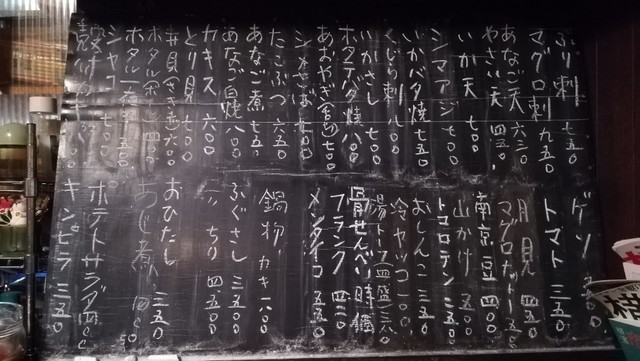 ぶり刺 七五〇
マグロ刺 九五〇
あなご天 六三〇
やさい天 四五〇
いか天 七〇〇
シマアジ 七〇〇
いかバタ焼 七五〇
くじら刺 八〇〇
いかさし 七〇〇
ホタテバタ焼 八〇〇
あおやぎ 七〇〇
たこぶつ 六五〇
あなご煮 七五〇
あなご白焼 八〇〇
カキス 六〇〇
とり貝 七〇〇
シャコ 七〇〇
ゲソ
トマト 三五〇
月見 四〇〇
マグロナットー 五五〇
南京豆 四〇〇
山かけ 五〇〇
トコロテン 三五〇
おしんこ 三五〇
冷ヤッコ 四〇〇
湯トーフ
骨せんべい 時価
フランク 四五〇
メンタイコ 五五〇
鍋物 カキ 一八〇〇
ふぐさし 三五〇〇
〃 ちり 四五〇〇
おひたし 三五〇
あじ煮
ポテトサラダ 四〇〇
キンピラ 三五〇